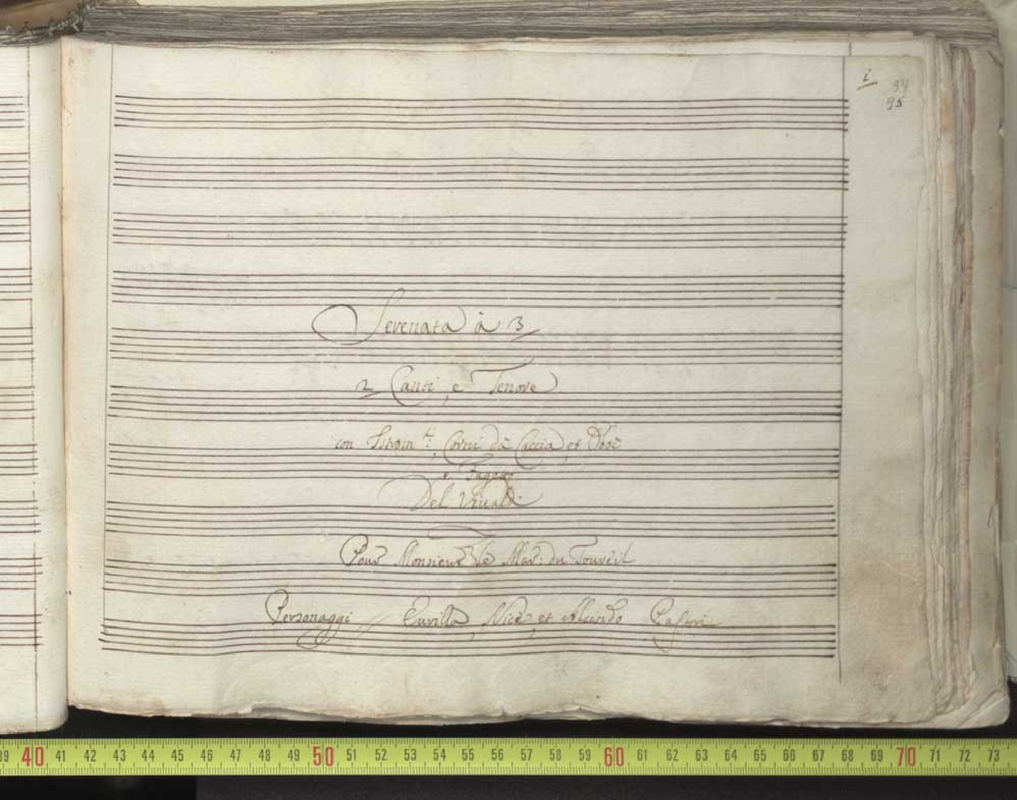 i 94
95
Serenata à 3
2 Canti, e Tenore
con Istromti, Corni dà Caccia, et Oboè
e Fagotto
Del Vivaldi
Pour Monsieur le Mar: du Touvreil
Personaggi Eurilla, Nice, et Alcindo Pastori
39 40 41 42 43 44 45 46 47 48 49 50 51 52 53 54 55 56 57 58 59 60 61 62 63 64 65 66 67 68 69 70 71 72 73